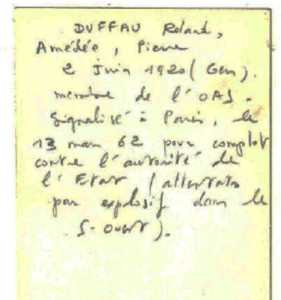 DUFFAU Roland,
Amédée, Pierre
2 Juin 1920 (Gers).
membre de l'OAS.
Signalisé à Paris, le
13 mars 62 pour complot
contre l'autorité de
l'Etat (attentats
par explosif dans le
S-Ouest).